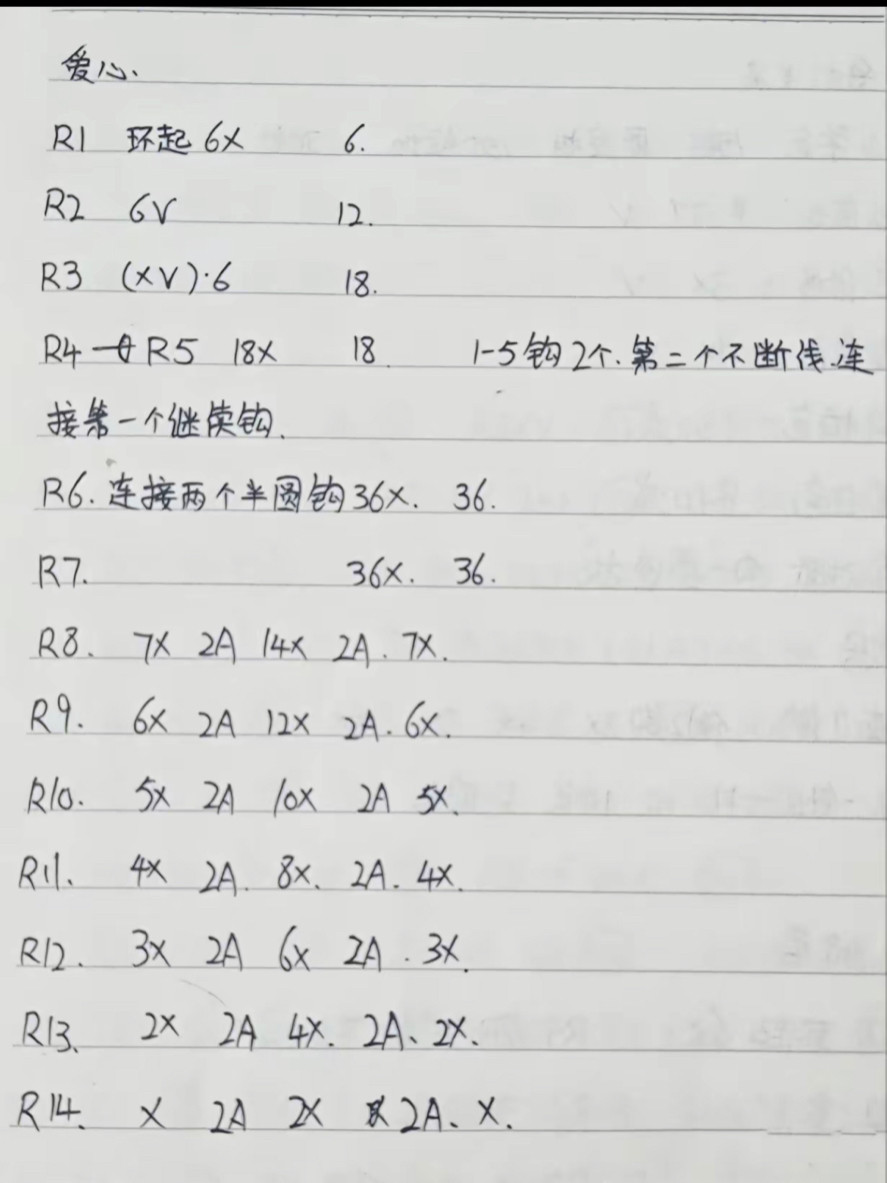 爱心.
R1 环起 6X 6.
R2 6V 12.
R3 (XV)·6 18.
R4 R5 18X 18. 1-5钩2个.第二个不断线.连
接第一个继续钩.
R6.连接两个半圆钩36X. 36.
R7. 36X. 36.
R8. 7X 2A 14X 2A. 7X.
R9. 6X 2A 12X 2A. 6X.
R10. 5X 2A 10X 2A 5X.
R11. 4X 2A. 8X. 2A. 4X.
R12. 3X 2A 6X 2A. 3X.
R13. 2X 2A 4X. 2A. 2X.
R14. X 2A 2X 2A. X.